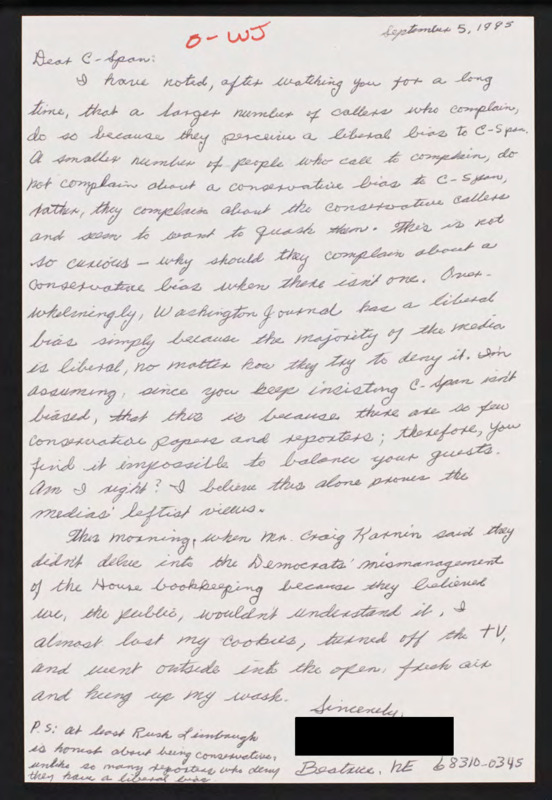 O-WJ
September 5, 1995
Dear C-Span:
I have noted, after watching you for a long
time, that a larger number of callers who complain,
do so because they perceive a liberal bias to C-Span.
A smaller number of people who call to complain, do
not complain about a conservative bias to C-Span,
rather, they complain about the conservative callers
and seem to want to quash them. This is not
so curious - why should they complain about a
conservative bias when there isn't one. Over-
whelmingly, Washington Journal has a liberal
bias simply because the majority of the media
is liberal, no matter how they try to deny it. I'm
assuming, since you keep insisting C-Span isn't
biased, that this is because there are so few
conservative papers and reporters; therefore, you
find it impossible to balance your guests.
Am I right? I believe this alone proves the
medias' leftist views.
This morning, when Mr. Craig Karnin said they
didn't delve into the Democrats' mismanagement
of the House bookkeeping because they believed
we, the public, wouldn't understand it, I
almost lost my cookies, turned off the TV,
and went outside into the open, fresh air
and hung up my wash.
Sincerely,
Beatrice, NE 68310-0345
P.S: At least Rush Limbaugh
is honest about being conservative,
unlike so many reporters who deny
they have a liberal bias